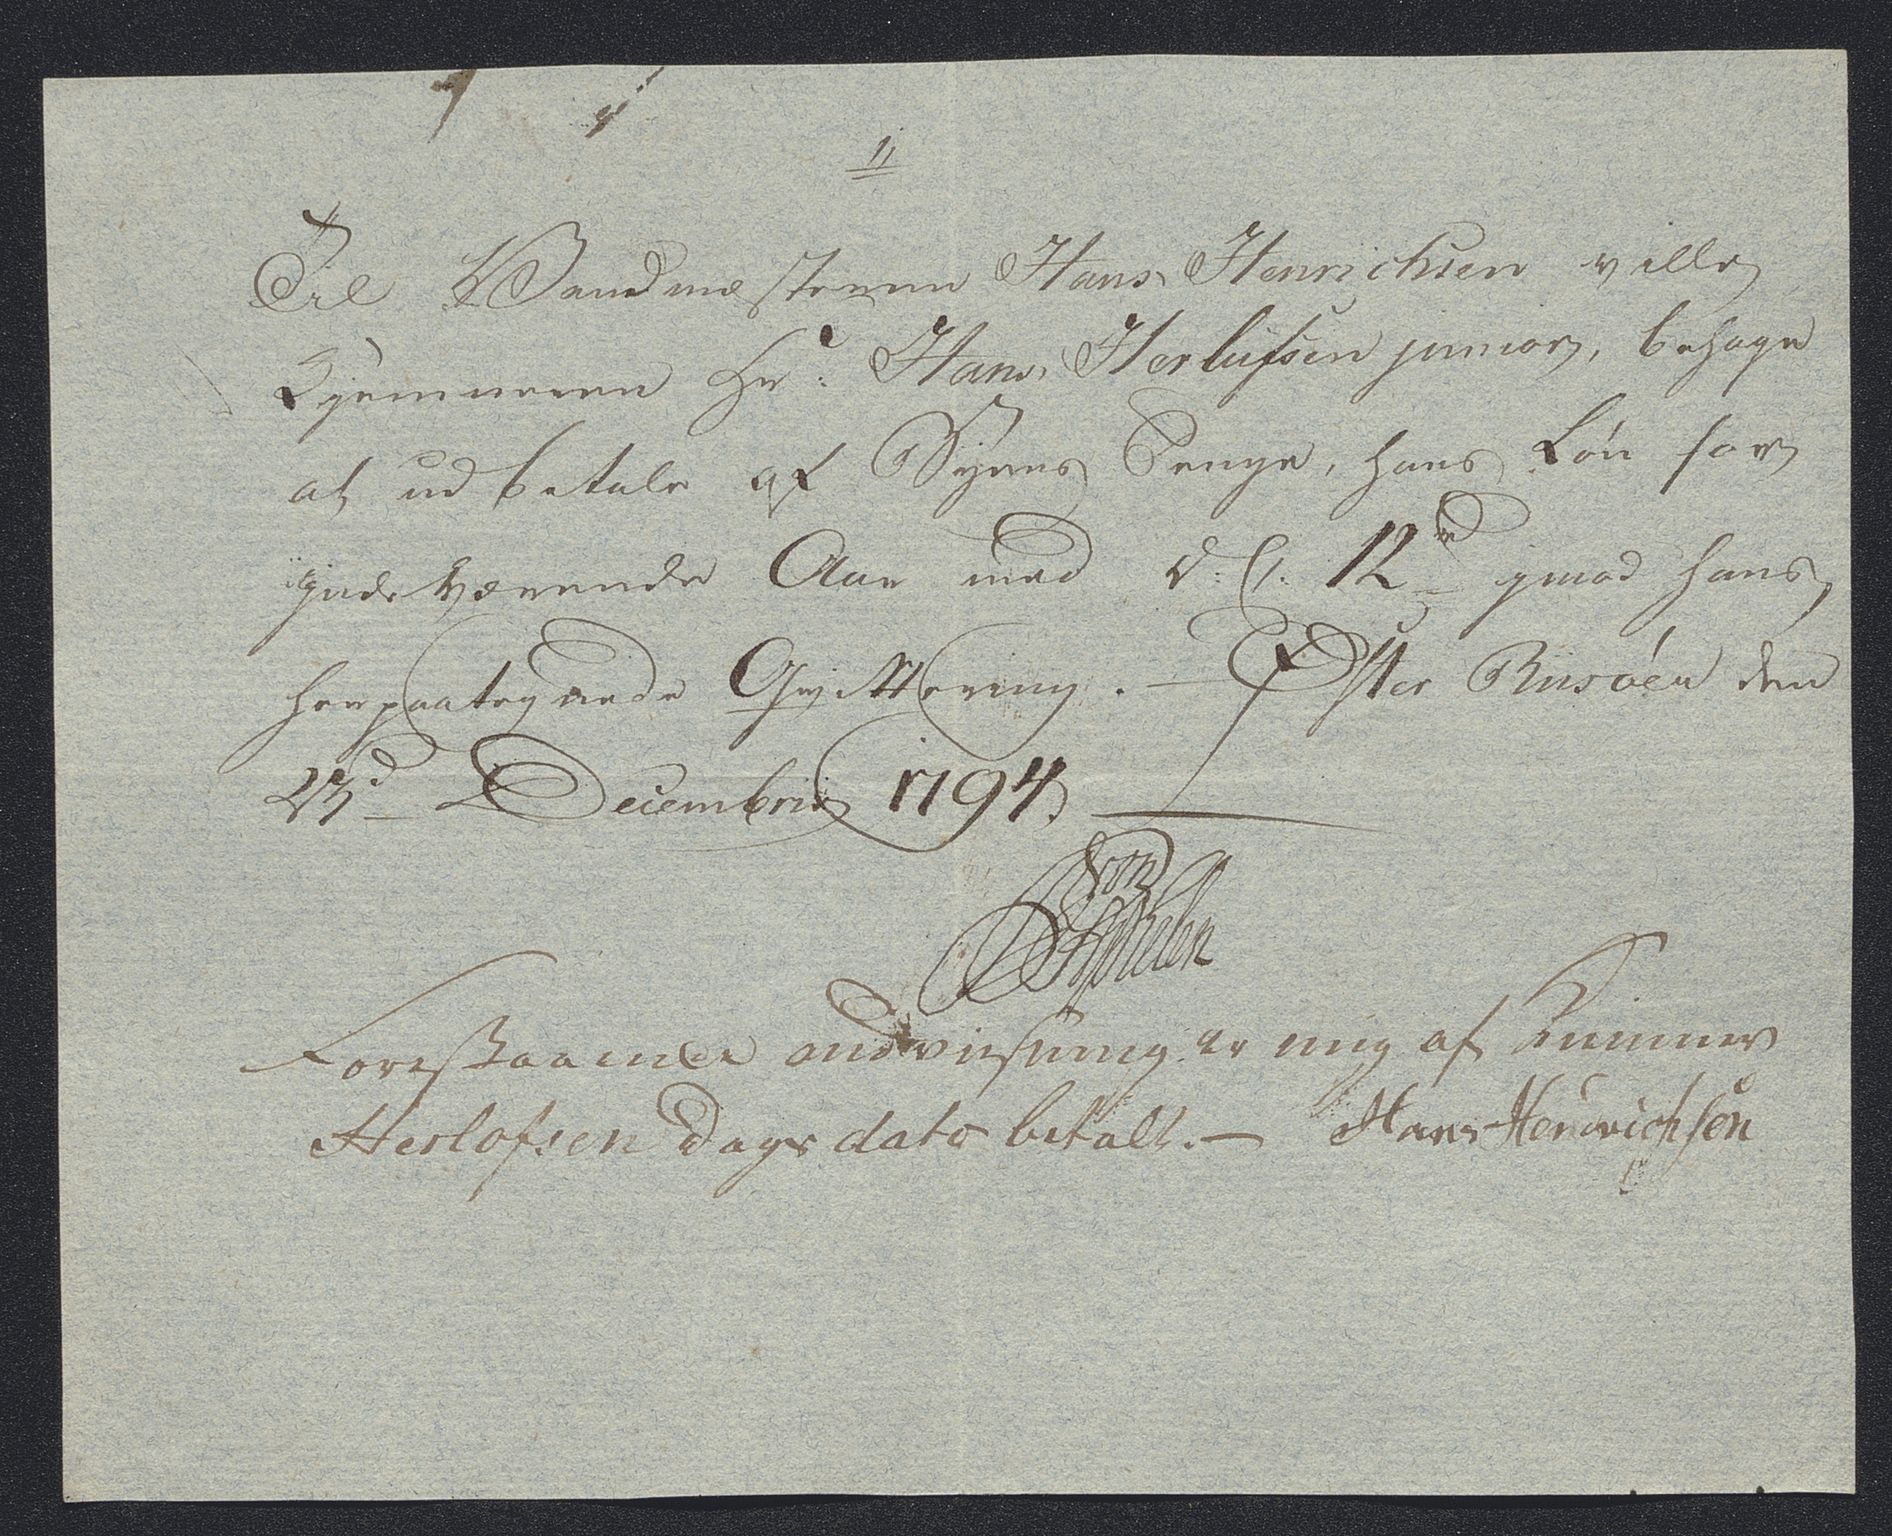 11
Til Vandmesteren Hans Henrichsen ville
Kjemneren Hr: Hans Herlufsen junior, behage
at udbetale af Byens Penge, hans Løn for
indeværende Aar med 12 rd imod hans
herpaategnede Qvittering. — Øster Riisöer den
23d Decembris 1794.
von
Foreстaaende andviisning er mig af Kemner
Herlofsen Dags dato betalt. — Hans Henrichsen